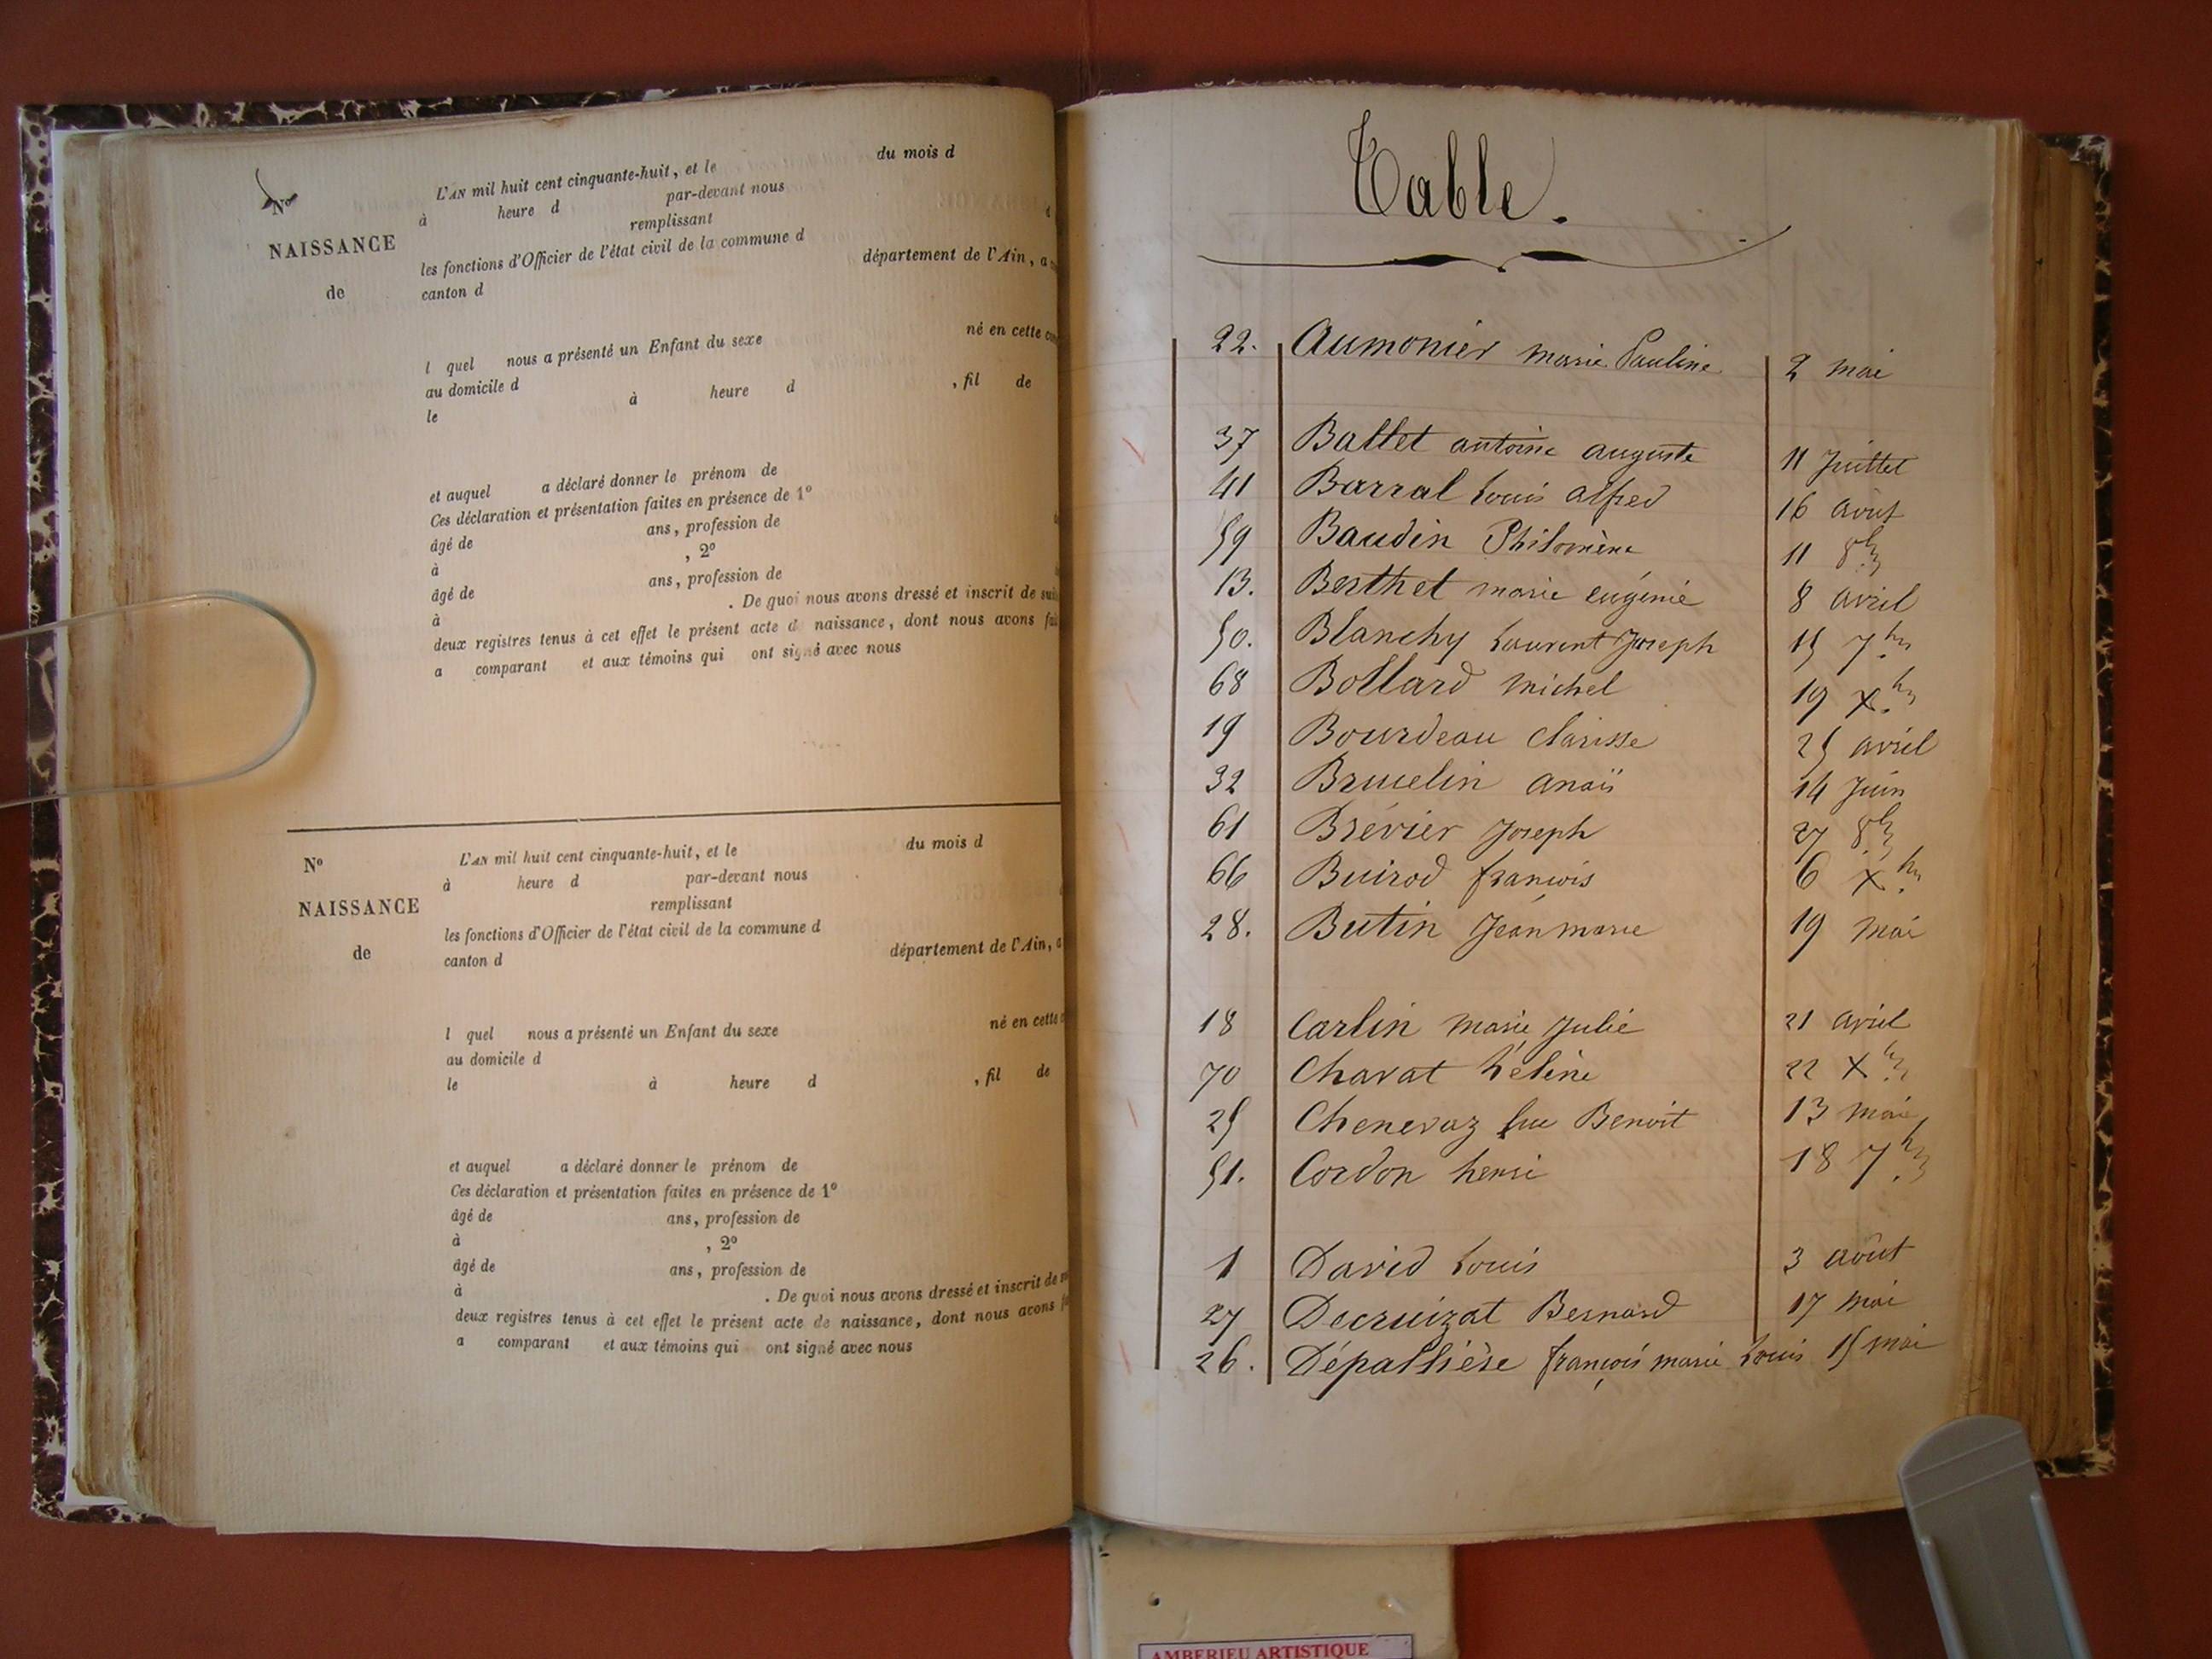 N°
NAISSANCE
de
L'AN mil huit cent cinquante-huit, et le du mois d
à heure d par-devant nous
remplissant
les fonctions d'Officier de l'état civil de la commune d
canton d département de l'Ain, a
l quel nous a présenté un Enfant du sexe né en cette
au domicile d
le à heure d , fil de
et auquel a déclaré donner le prénom de
Ces déclaration et présentation faites en présence de 1°
âgé de ans, profession de
à , 2°
âgé de ans, profession de
à . De quoi nous avons dressé et inscrit de
deux registres tenus à cet effet le présent acte de naissance, dont nous avons
a comparant et aux témoins qui ont signé avec nous
N°
NAISSANCE
de
L'AN mil huit cent cinquante-huit, et le du mois d
à heure d par-devant nous
remplissant
les fonctions d'Officier de l'état civil de la commune d
canton d département de l'Ain, a
l quel nous a présenté un Enfant du sexe né en cette
au domicile d
le à heure d , fil de
et auquel a déclaré donner le prénom de
Ces déclaration et présentation faites en présence de 1°
âgé de ans, profession de
à , 2°
âgé de ans, profession de
à . De quoi nous avons dressé et inscrit de
deux registres tenus à cet effet le présent acte de naissance, dont nous avons
a comparant et aux témoins qui ont signé avec nous
Table.
22. Aumonier marie Pauline 2 mai
37 Ballet antoine auguste 11 Juillet
41 Barral Louis alfred 16 août
59 Baudin Philomène 11 8bre
13. Berthet marie eugénie 8 avril
50. Blanchy Laurent Joseph 15 7bre
68 Bollard michel 19 Xbre
19 Bourdeau Clarisse 25 avril
32 Bruelin anaïs 14 Juin
61 Brévier Joseph 27 8bre
66 Buirod françois 6 Xbre
28. Butin Jean marie 19 mai
18 Carlin marie Julie 21 avril
70 Charat hélène 22 Xbre
25 Chenevaz luc Benoit 13 mai
51. Cordon henri 18 7bre
1 David Louis 3 août
27 Decruizat Bernard 17 mai
26. Dépallière françois marie Louis 15 mai
AMBERIEU ARTISTIQUE